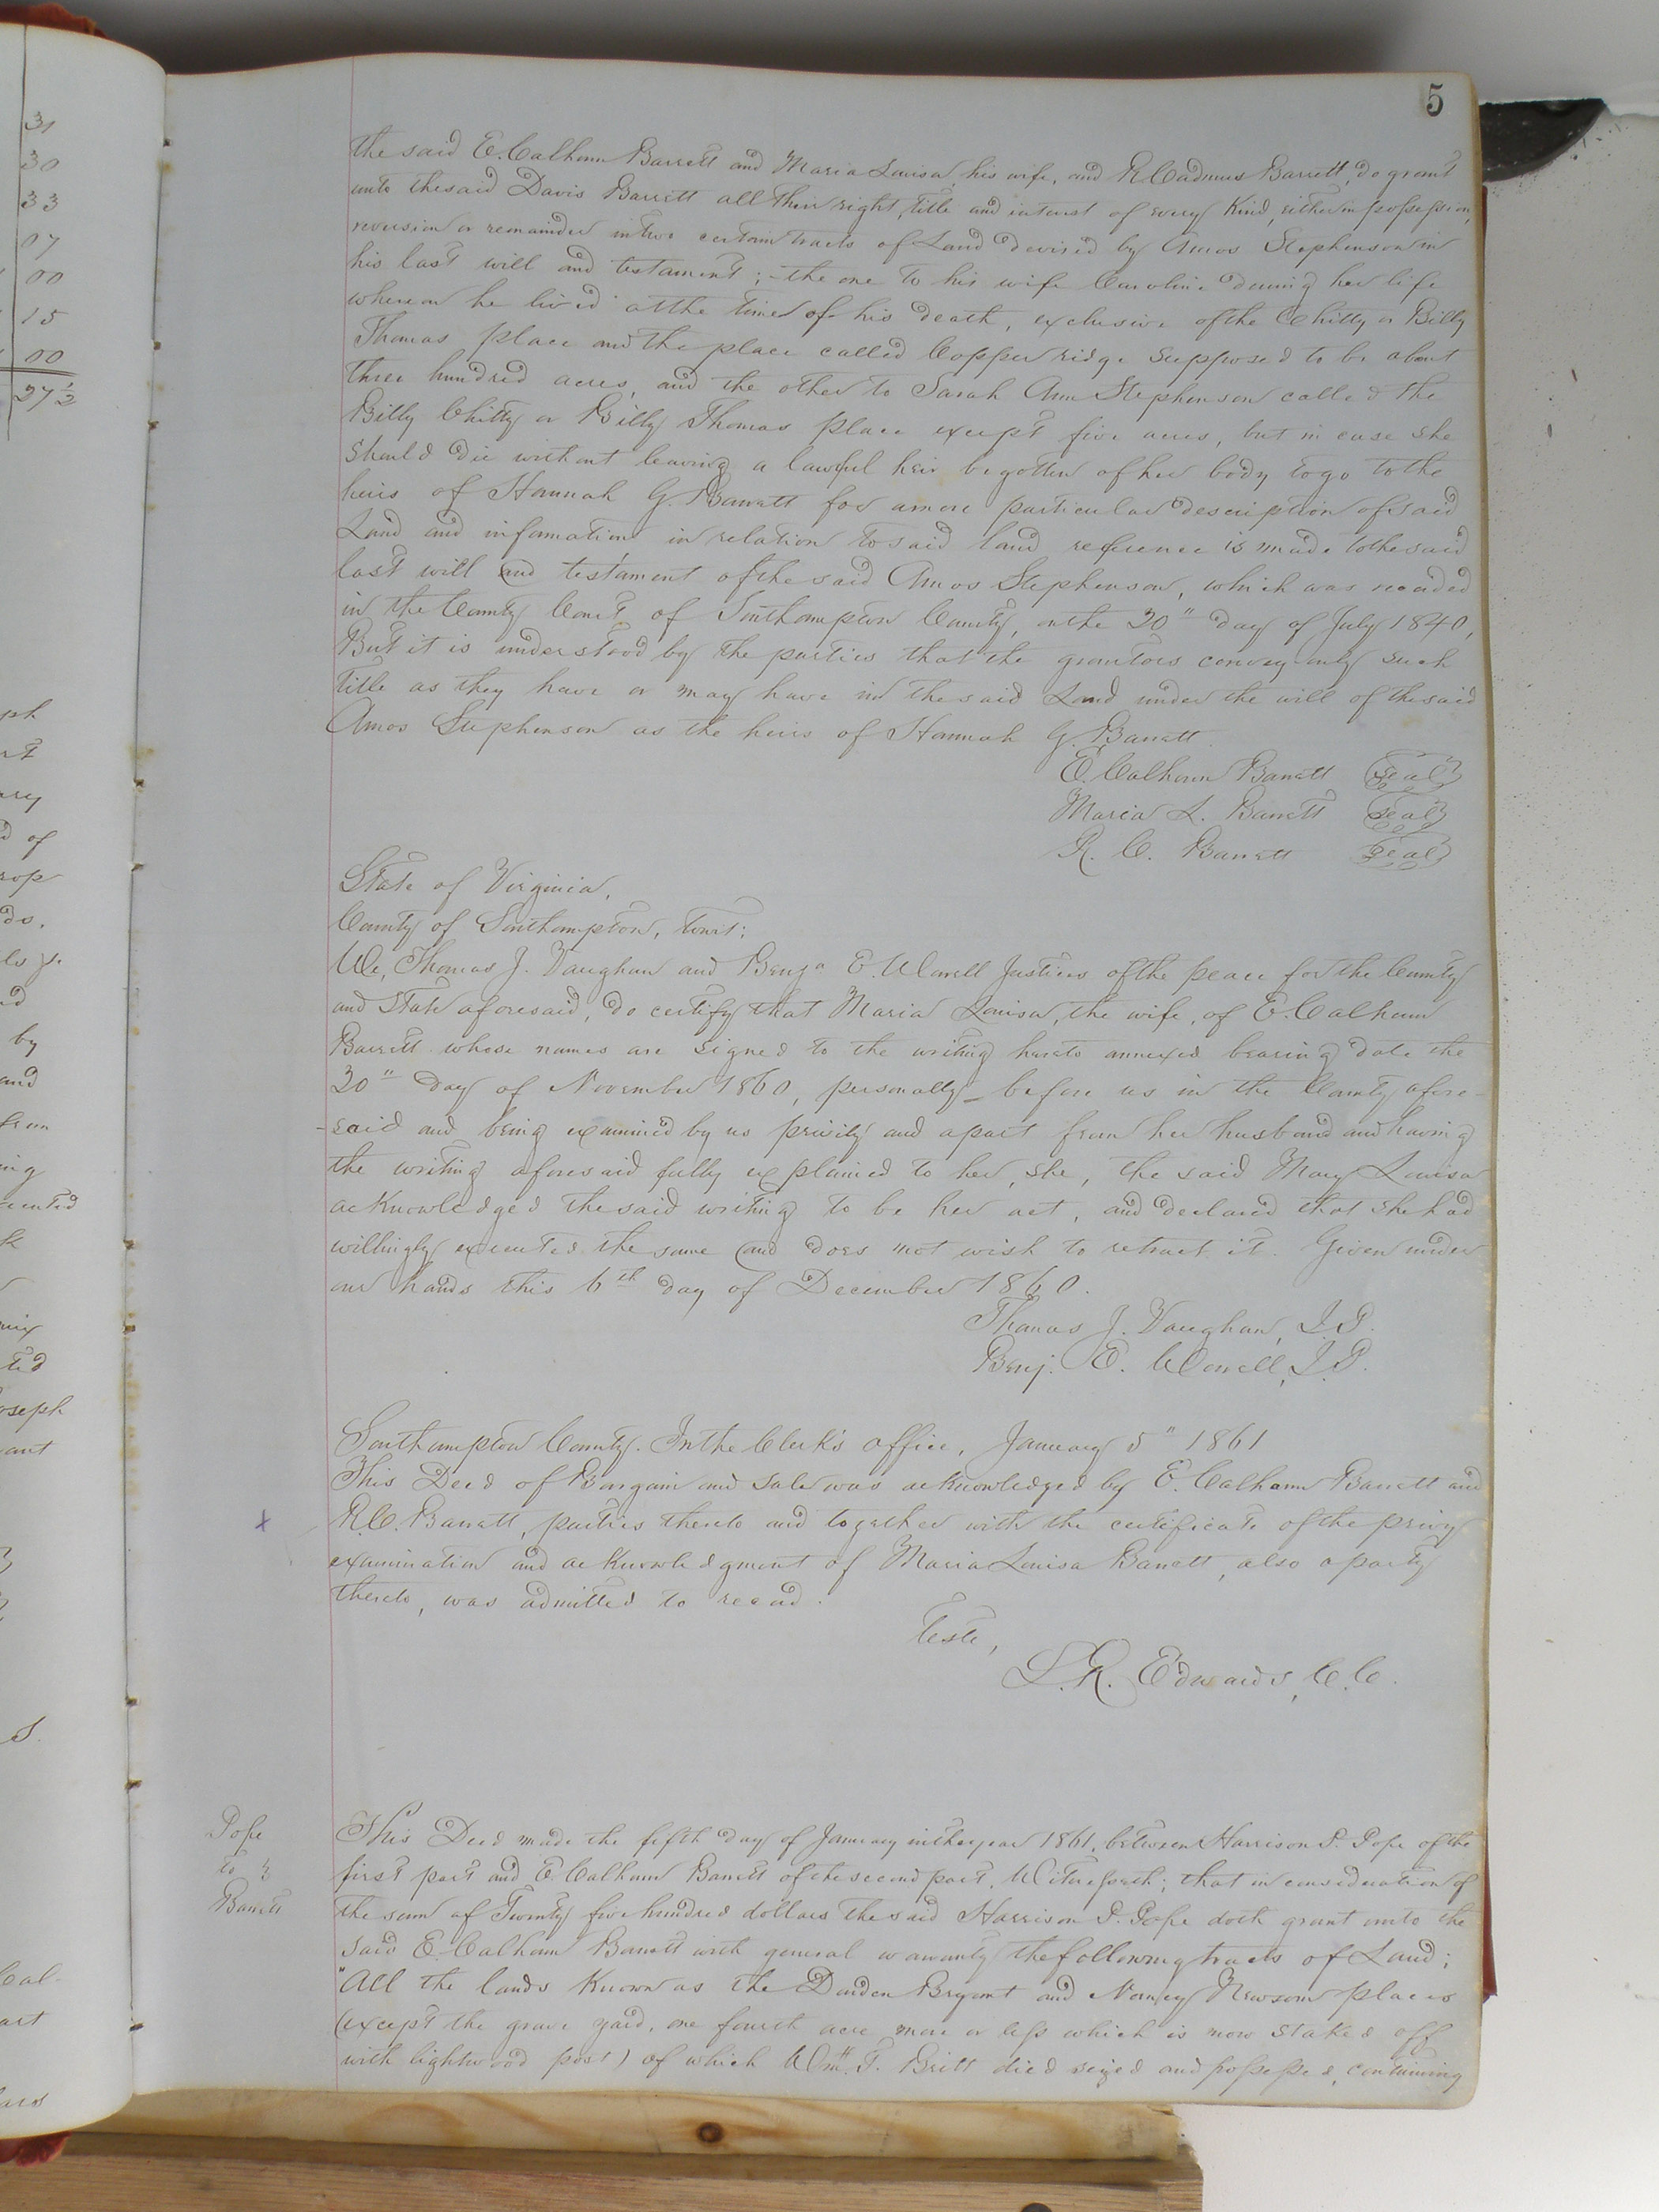 5
31
30
33
07
00
15
00
27 1/2
the said E. Calhoun Barrett and Maria Louisa, his wife, and R Cadmus Barrett, do grant
unto the said Davis Barrett all their right, title and interest of every Kind, either in possession,
reversion or remainder in two certain tracts of Land devised by Amos Stephenson in
his last will and testament; - the one to his wife Caroline during her life
whereon he lived at the time of his death, exclusive of the Chitty or Billy
Thomas place and the place called Copper ridge supposed to be about
three hundred acres, and the other to Sarah Ann Stephenson called the
Billy Chitty or Billy Thomas place except five acres, but in case she
should die without leaving a lawful heir begotten of her body to go to the
heirs of Hannah G. Barrett for a more particular description of said
Land and information in relation to said land reference is made to the said
last will and testament of the said Amos Stephenson, which was recorded
in the County Court of Southampton County, on the 20" day of July 1840,
But it is understood by the parties that the grantors convey only such
title as they have or may have in the said Land under the will of the said
Amos Stephenson as the heirs of Hannah G. Barrett.
E. Calhoun Barrett Seal
Maria L. Barrett Seal
R. C. Barrett Seal
State of Virginia,
County of Southampton, towit:
We, Thomas J. Vaughan and Benja E. Worrell Justices of the peace for the County
and State aforesaid, do certify that Maria Louisa, the wife, of E. Calhoun
Barrett whose names are signed to the writing hereto annexed bearing date the
30" day of November 1860, personally before us in the County afore-
-said and being examined by us privily and apart from her husband and having
the writing aforesaid fully explained to her, she, the said Mary Louisa
acknowledged the said writing to be her act, and declared that she had
willingly executed the same and does not wish to retract it. Given under
our hands this 6th day of December 1860.
Thomas J. Vaughan, J.P.
Benj. E. Worrell, J.P.
Southampton County. In the Clerk's office, January 5" 1861
This Deed of Bargain and Sale was acknowledged by E. Calhoun Barrett and
R.C. Barrett, parties thereto and together with the certificate of the privy
examination and acknowledgment of Maria Louisa Barrett, also a party
thereto, was admitted to record.
Teste,
L. R. Edwards, C.C.
Pope
to
Barrett
This Deed made the fifth day of January in the year 1861, between Harrison P. Pope of the
first part and E. Calhoun Barrett of the second part, Witnesseth; that in consideration of
the sum of Twenty five hundred dollars the said Harrison P. Pope doth grant unto the
said E. Calhoun Barrett with general warranty the following tracts of Land;
"All the lands Known as the Darden Bryant and Nancy Newsom places
(except the grave yard, one fourth acre more or less which is now staked off
with lightwood post) of which Wm. T. Britt died seized and possessed, containing